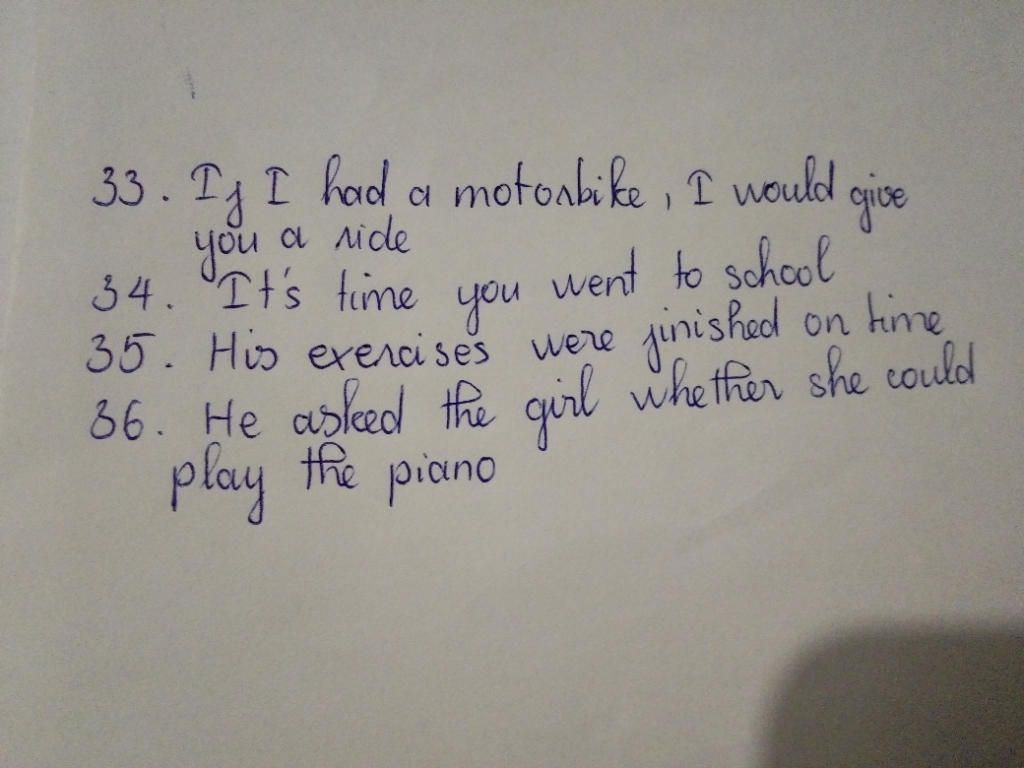 33. If I had a motorbike, I would give
you a ride
34. It's time you went to school
35. His exercises were finished on time
36. He asked the girl whether she could
play the piano